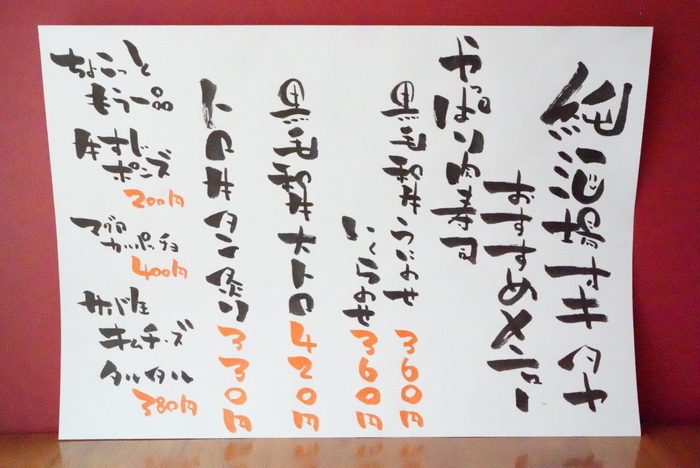 純酒場オキタヤ
おすすめメニュー
やっぱり肉寿司
黒毛和牛うにのせ 360円
いくらのせ 360円
黒毛和牛大トロ 420円
トロ牛タン炙り 330円
ちょこっと
もう一品
牛すじ
ポンズ
200円
マグロ
カルパッチョ
400円
サバ缶
キムチーズ
タルタル
380円